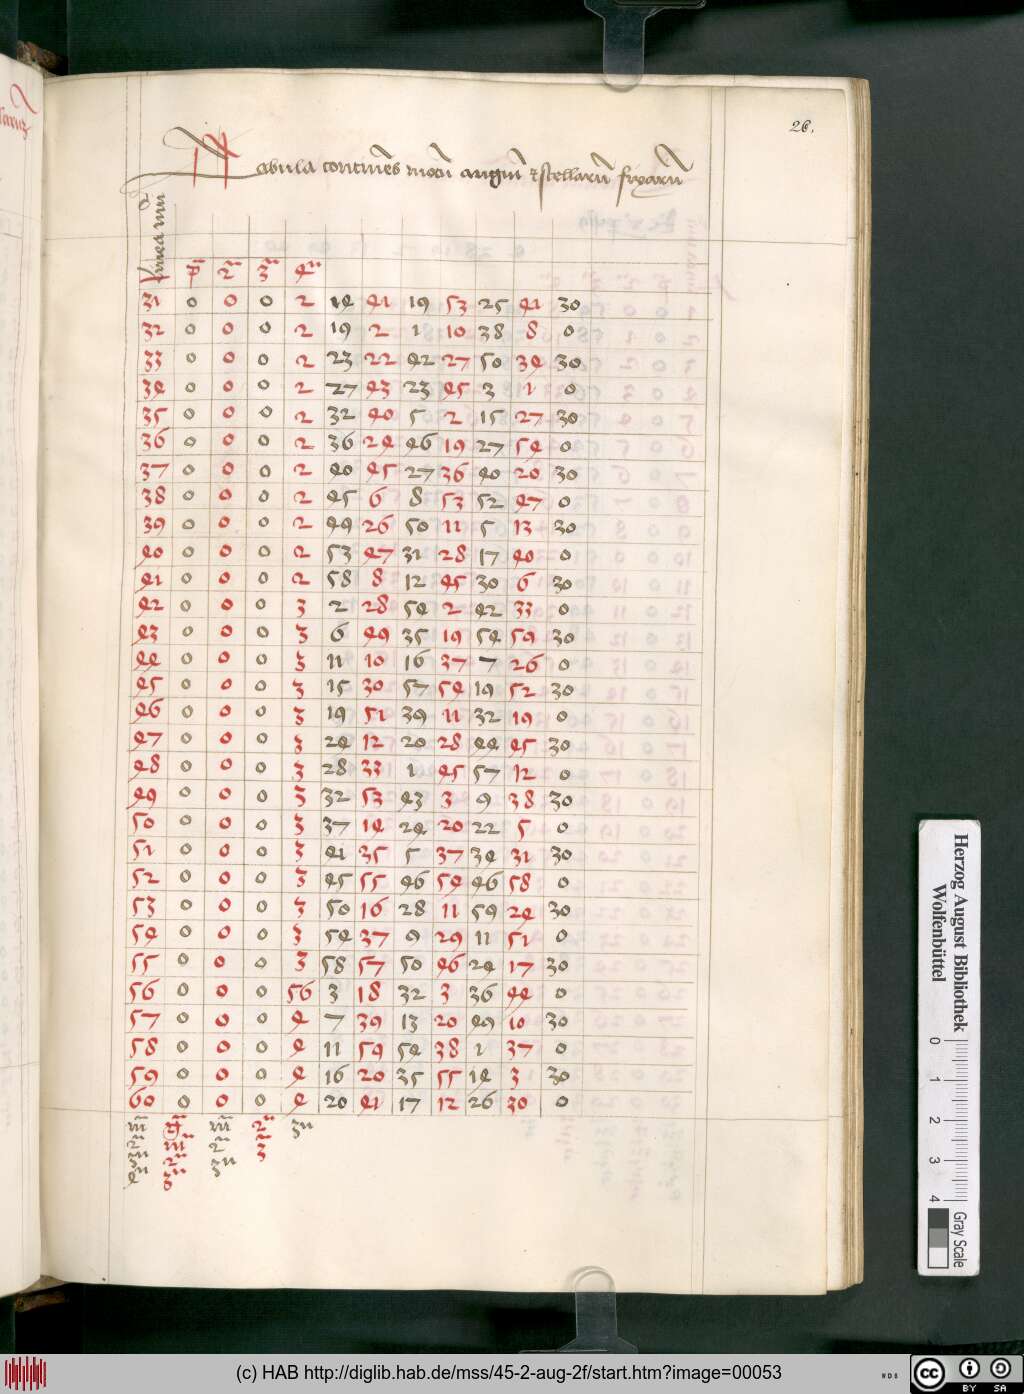 26.
Tabula continēs motū augiū et stellarū fixarū
linea nūi
p̄ 2ā 3ā 4ā
31 0 0 0 2 14 41 19 53 25 41 30
32 0 0 0 2 19 2 1 10 38 8 0
33 0 0 0 2 23 22 42 27 50 34 30
34 0 0 0 2 27 43 23 45 3 1 0
35 0 0 0 2 32 40 5 2 15 27 30
36 0 0 0 2 36 24 46 19 27 54 0
37 0 0 0 2 40 45 27 36 40 20 30
38 0 0 0 2 45 6 8 53 52 47 0
39 0 0 0 2 49 26 50 11 5 13 30
40 0 0 0 2 53 47 31 28 17 40 0
41 0 0 0 2 58 8 12 45 30 6 30
42 0 0 0 3 2 28 54 2 42 33 0
43 0 0 0 3 6 49 35 19 54 59 30
44 0 0 0 3 11 10 16 37 7 26 0
45 0 0 0 3 15 30 57 54 19 52 30
46 0 0 0 3 19 51 39 11 32 19 0
47 0 0 0 3 24 12 20 28 44 45 30
48 0 0 0 3 28 33 1 45 57 12 0
49 0 0 0 3 32 53 43 3 9 38 30
50 0 0 0 3 37 14 24 20 22 5 0
51 0 0 0 3 41 35 5 37 34 31 30
52 0 0 0 3 45 55 46 54 46 58 0
53 0 0 0 3 50 16 28 11 59 24 30
54 0 0 0 3 54 37 9 29 11 51 0
55 0 0 0 3 58 57 50 46 24 17 30
56 0 0 0 56 3 18 32 3 36 44 0
57 0 0 0 4 7 39 13 20 49 10 30
58 0 0 0 4 11 59 54 38 1 37 0
59 0 0 0 4 16 20 35 55 14 3 30
60 0 0 0 4 20 41 17 12 26 30 0
Herzog August Bibliothek
Wolfenbüttel
0 1 2 3 4
Gray Scale
(c) HAB http://diglib.hab.de/mss/45-2-aug-2f/start.htm?image=00053
cc BY SA